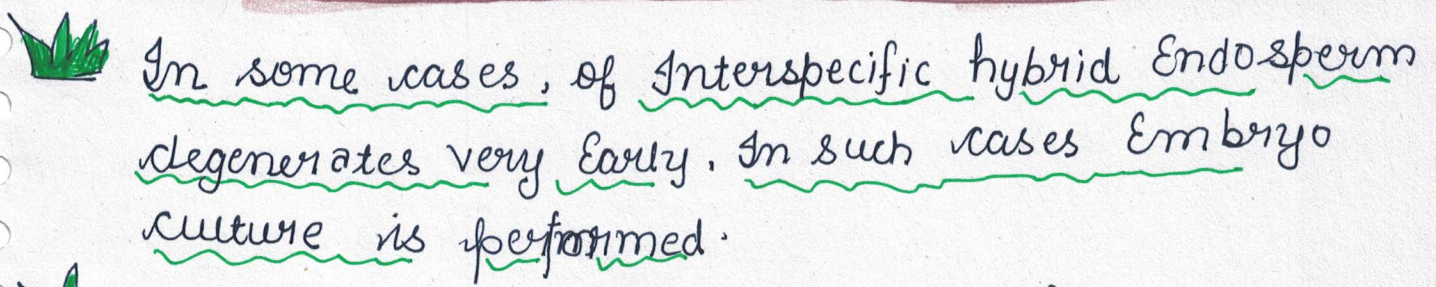 In some cases, of Interspecific hybrid Endosperm
degenerates very Early. In such cases Embryo
culture is performed.